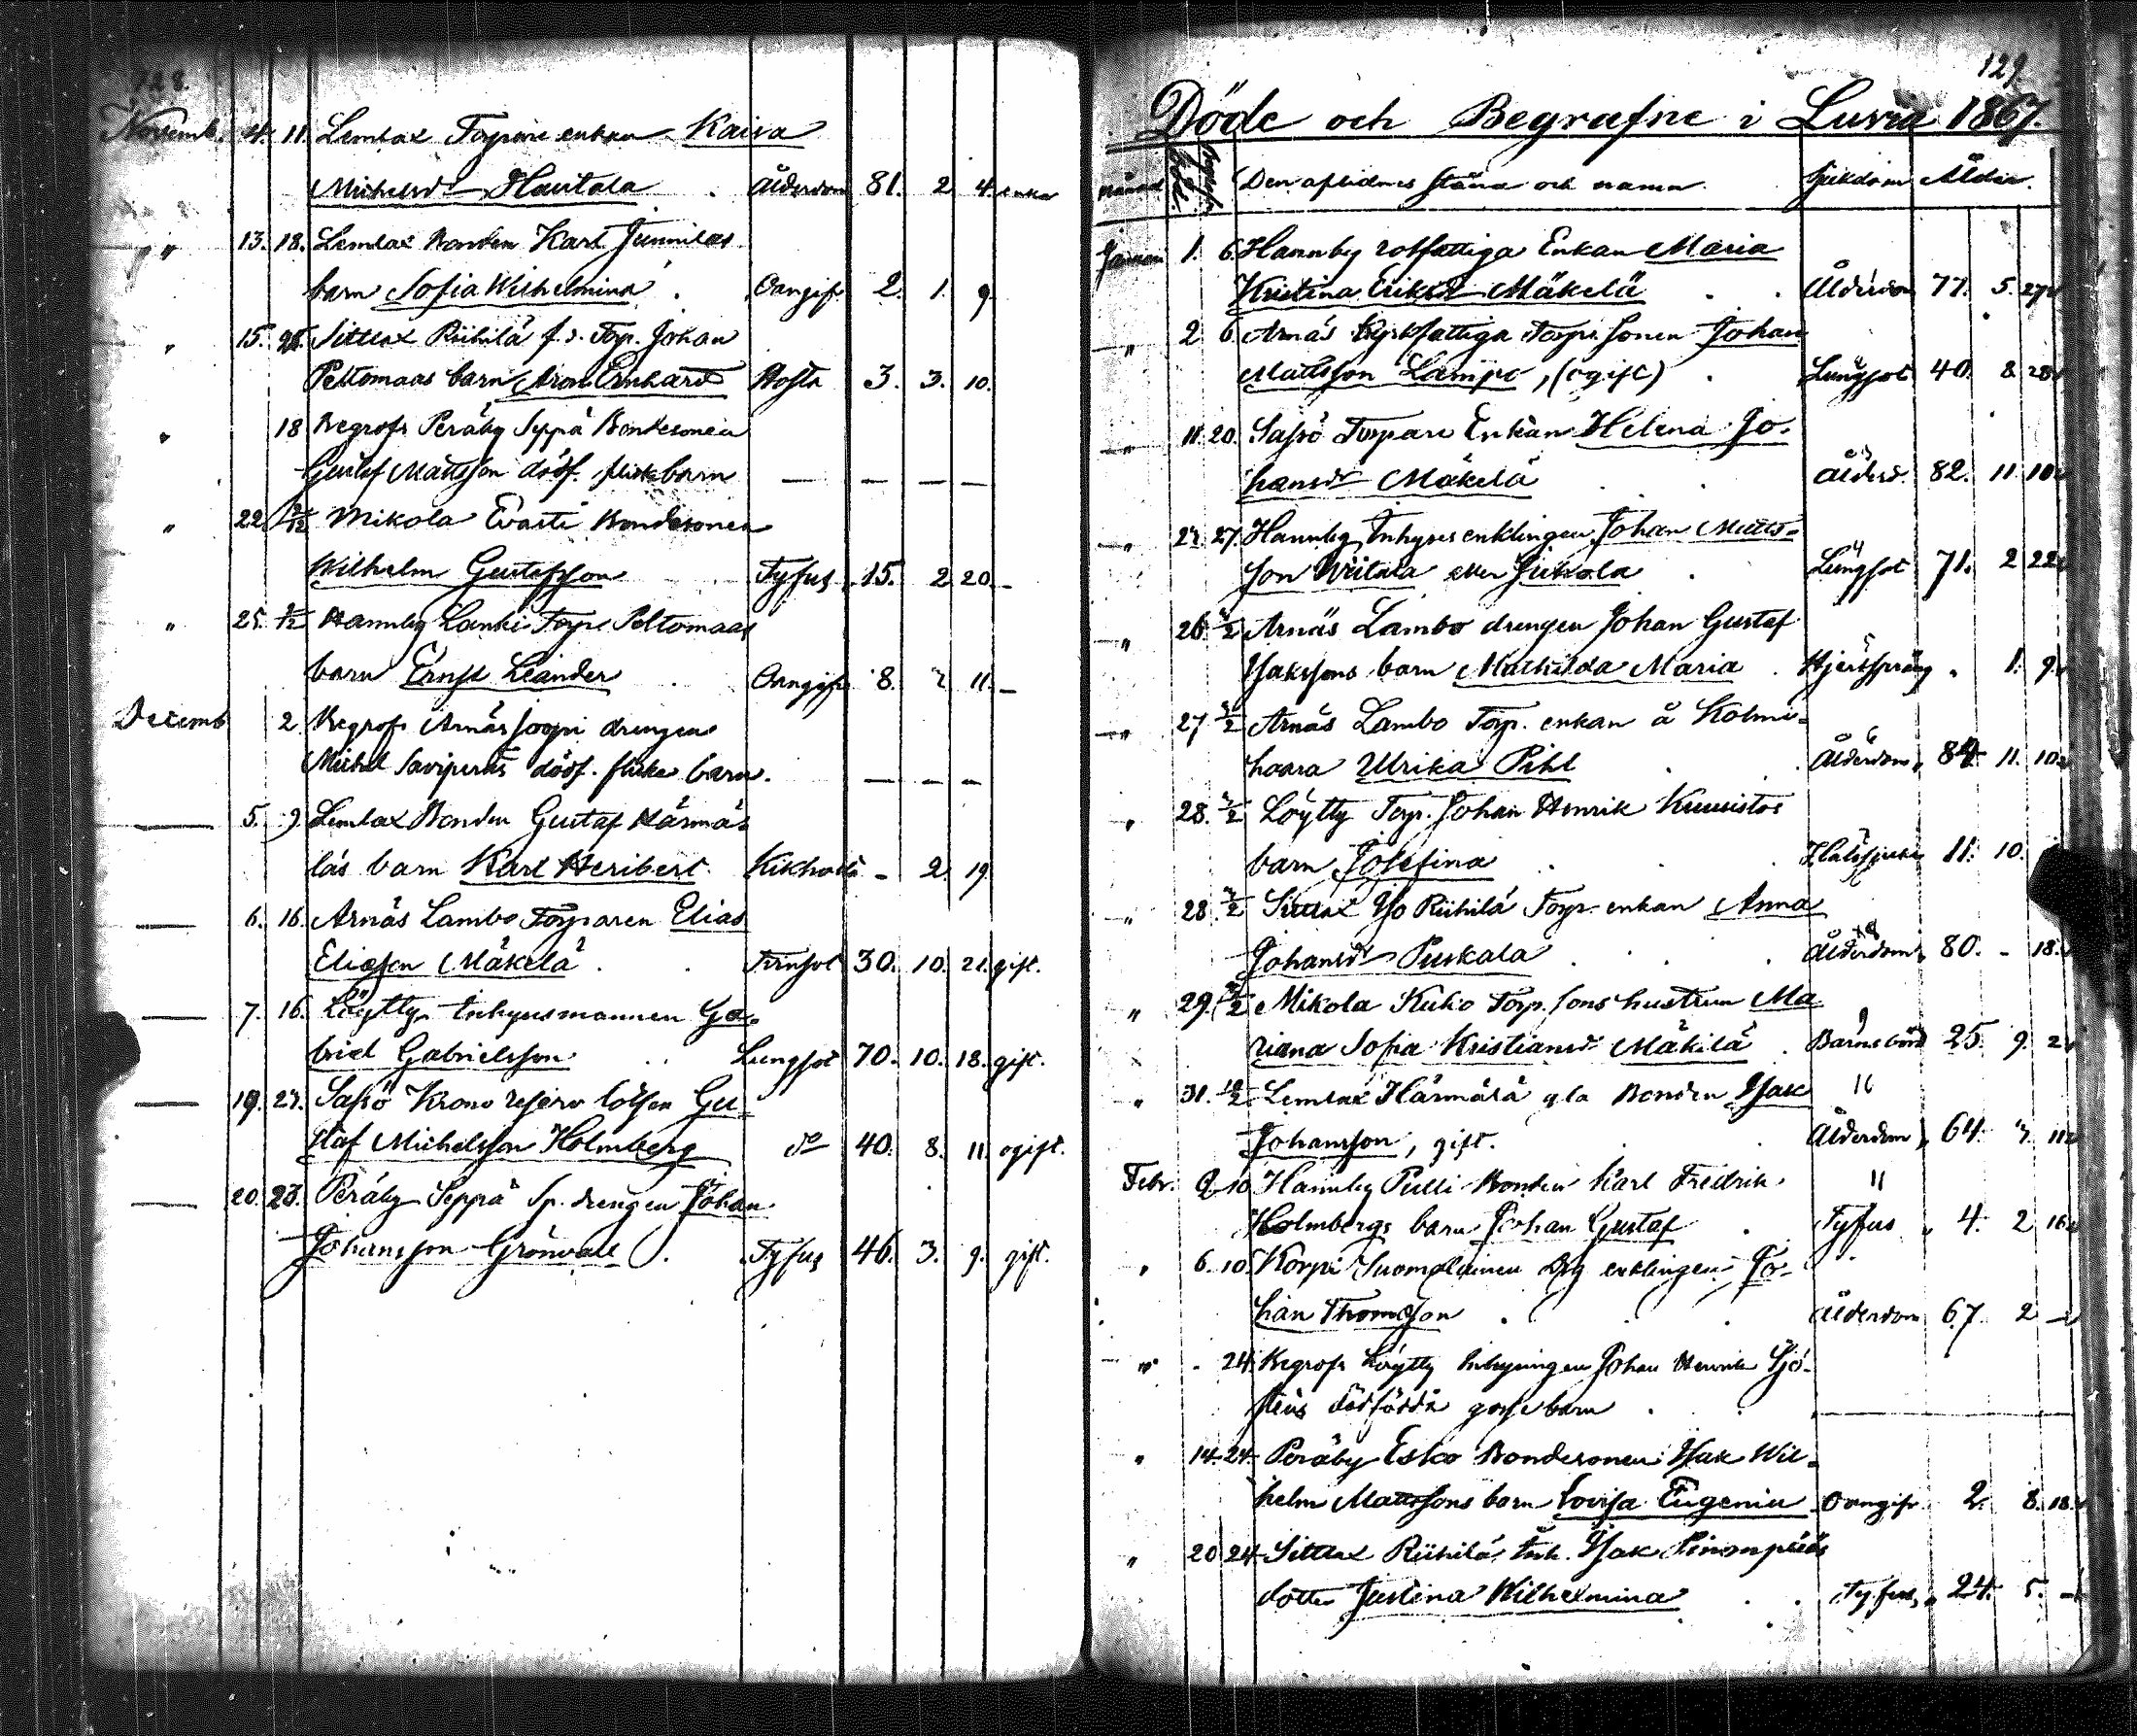 128.
Novemb. 4. 11. Lemlax Torpare enkan Kaisa
Michelsd Hautala . Ålderdom 81. 2 4. enka
" 13. 18. Lemlax Bonden Karl Junnilas
barn Sofia Wilhelmina . Oangifv 2. 1. 9.
" 15. Sittlax Riihilä f. d. Torp. Johan
Peltomaas barn Aron Ernhard Hosta 3. 3. 10.
" 18 Begrofs Peräby Seppä Bondesonen
Gustaf Mattsson dödf. flickebarn — — — —
" 22. 2/12 Mikola Evarti Bondesonen
Wilhelm Gustafsson Tyfus 15. 2 20. –
" 25. 2/12 Hannby Lanki Torp. Peltomaas
barn Ernst Leander . Oangifv 8. 2 11. –
Decemb 2. Begrofs Arnäs Soopi drengens
Michel dödf. flicke barn. — — —
5. 9. Lemlax Bonden Gustaf Härmä-
läs barn Karl Heribert Kikhosta – 2. 19.
6. 16. Arnäs Lambo Torparen Elias
Eliasson Mäkelä . 30. 10. 21. gift.
7. 16. Löytty Inhysesmannen Ga-
briel Gabrielsson Lungsot 70. 10. 18. gift.
19. 23. Sassö Krono reserv lotsen Gu-
staf Michelsson Holmberg do 40. 8. 11. ogift.
20. 23. Peräby Seppä Sp. drengen Johan
Johansson Grönvall . Tyfus 46. 3. 9. gift.
129.
Döde och Begrafne i Luvia 1867.
Månad Död. Begrafv. Den aflidnes stånd och namn. Sjukdom Ålder.
Januari 1. 6. Hannby rotfattiga Enkan Maria
Kristina Eriksd Mäkelä . . Ålderdom 77. 5. 27
" 2 6. Arnäs Kyrkfattiga Torp. Sonen Johan
Mattsson Lampo, (ogift) . Lungsot 40. 8 28
" 11. 20. Sassö Torpare Enkan Helena Jo-
hansd Mäkelä . . Ålderd. 82. 11. 10
" 27. Hannby Inhyses enklingen Johan Matts-
son Wiitala eller Jukola . Lungsot 71. 2 22
" 26. 3/2 Arnäs Lambo drengen Johan Gustaf
Isakssons barn Mathilda Maria . Hjertsprång " 1. 9
" 27 3/2 Arnäs Lambo Torp. enkan å Kolmi-
haara Ulrika Pihl . Ålderdom 84 11. 10
" 28. 3/2 Löytty Torp. Johan Henrik Kuusistos
barn Josefina . . Halssjuka 11. 10.
" 28 3/2 Sittlax Iso Riihilä Torp. enkan Anna
Johansd Puskala . . . Ålderdom 80. - 18.
" 29. 3/2 Mikola Kuko Torp. Sons hustrun Ma
riana Sofia Kristiansd Mäkilä . Barnsbörd 25 9. 2
" 31. 10/2 Lemlax Härmälä gla Bonden Isak
Johansson, gift. Ålderdom 64. 3. 11
Febr. 2 10 Hannby Pulli Bonden Karl Fredrik
Holmbergs barn Johan Gustaf . Tyfus " 4. 2 16
" 6. 10. Korpi Suomalainen enklingen Jo-
han Thomasson . . . Ålderdom 67 2 –
" - 24. Begrofs Löytty Inhysingen Johan Henrik Sjö-
steus dödfödda gosse barn .
" 14. 24. Peräby Esko Bondesonen Isak Wil-
helm Mattssons barn Lovisa Eugenia Oangifv. 2. 8. 18.
" 20 24. Sittlax Riihilä Inh. Isak
dotter Justina Wilhelmina . . Tyfus " 24. 5. –